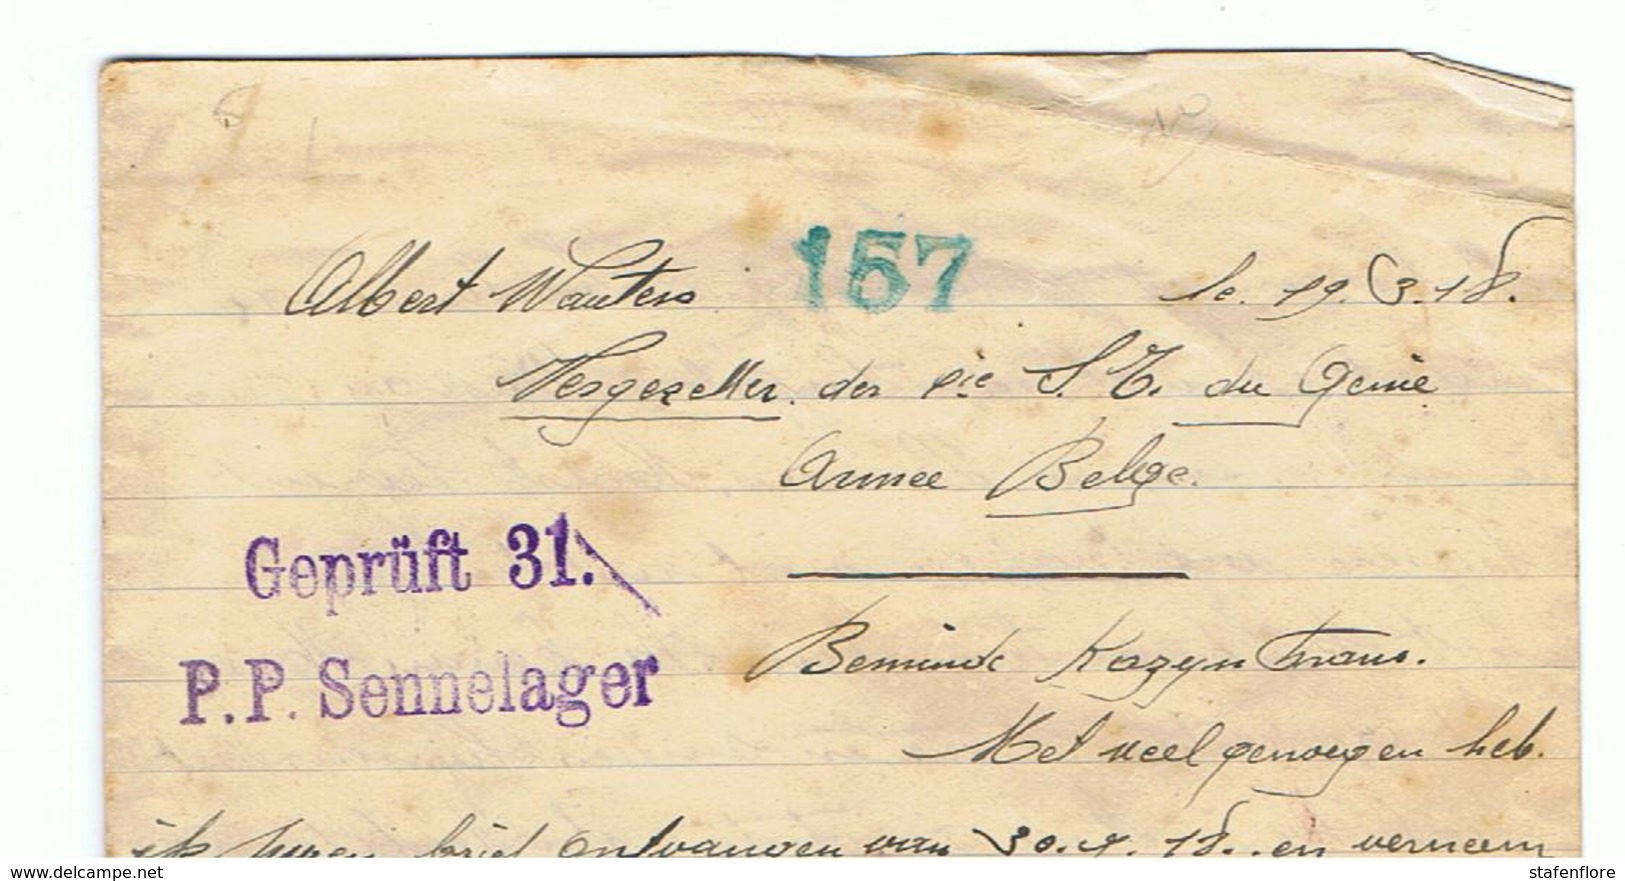 Albert Wauters 157 le. 19.3.18.
Vergezeller. der pie S. T. du Genie
Armee Belge.
Geprüft 31.
P.P. Sennelager
Beminde Kozyn Frans.
Met veel genoegen heb.
ik uwen brief ontvangen van 30.1.18. en verneem
delcampe.net
stafenflore